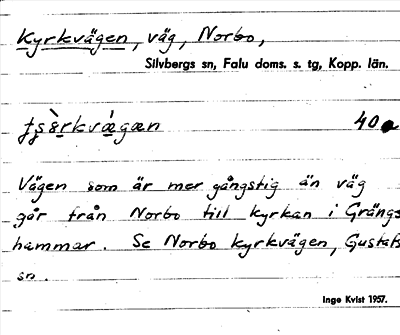 Kyrkvägen, väg, Norbo,
Silvbergs sn, Falu doms. s. tg, Kopp. län.
40
Vägen som är mer gångstig än väg
går från Norbo till kyrkan i Grängs
hammar. Se Norbo kyrkvägen, Gustafs
sn.
Inge Kvist 1957.